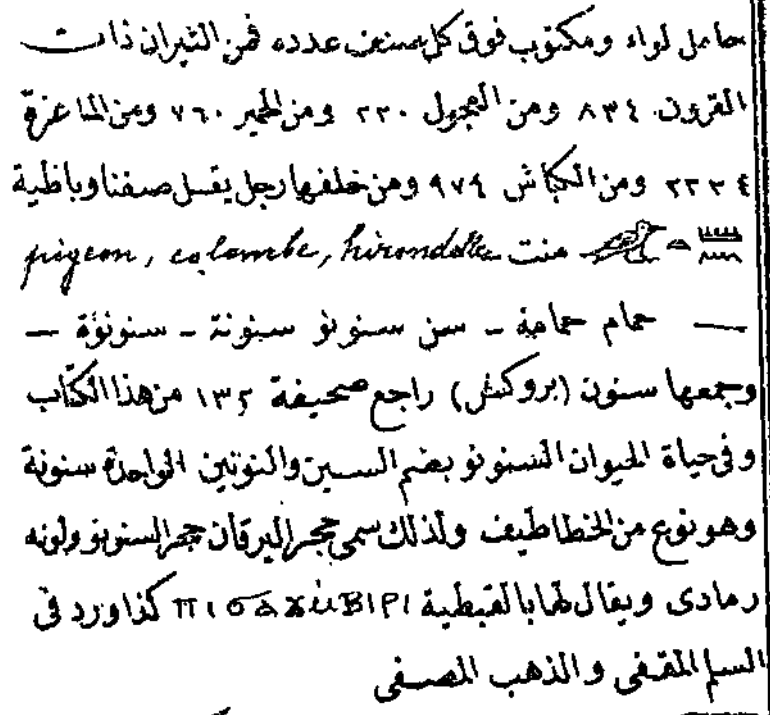 حامل لواء ومكتوب فوق كل صنف عدده فمن الثيران ذات
القرون ٨٣٤ ومن العجول ٢٢٠ ومن الحمير ٧٦٠ ومن الماعزة
٢٢٣٤ ومن الكباش ٩٧٤ ومن خلفها رجل يقسل صفنا وباظية
منت pigeon, colombe, hirondelle
— حمام حمامة - سن سنونو سنونة - سنونؤة —
وجمعها سنون (بروكش) راجع صحيفة ١٣٢ من هذا الكتاب
وفى حياة الحيوان السنونو بضم السين والنونين الواحدة سنونة
وهو نوع من الخطاطيف ولذلك سمى حجر اليرقان حجر السنونو ولونه
رمادى ويقال لها بالقبطية كذا ورد فى
السلم المقفى والذهب المصفى